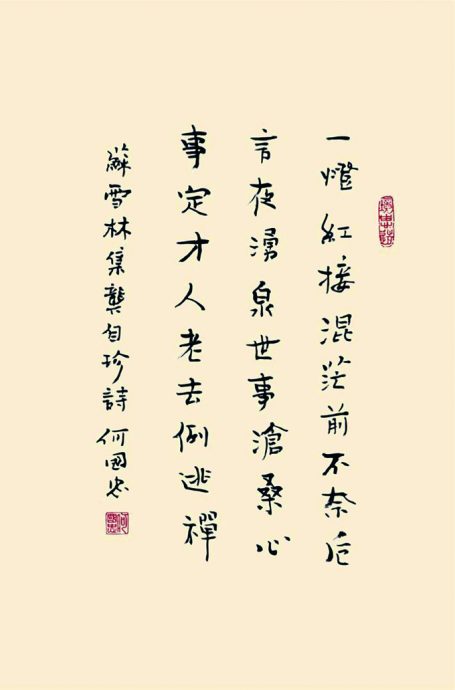 一燈紅接混茫前不奈卮
言夜湧泉世事滄桑心
事定才人老去例逃禪
蘇雪林集龔自珍詩 何國忠